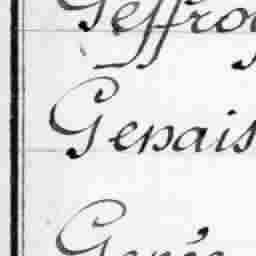 Geffroy
Genais
Genée